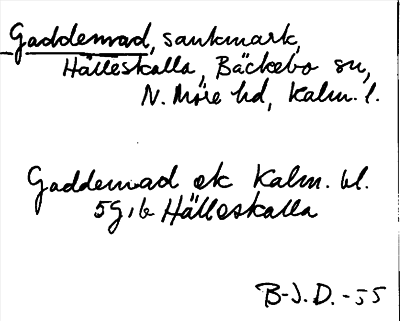 Gaddemad, sankmark,
Hälleskalla, Bäckebo sn,
N. Möre hd, Kalm. l.
Gaddemad ek Kalm. bl.
5G, b Hälleskalla
B-J.D. -55